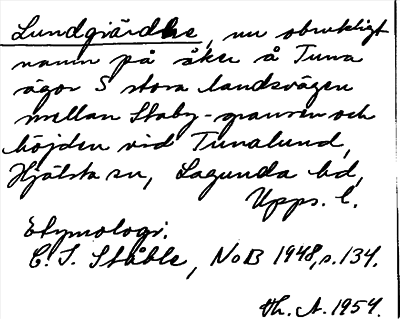 Lundgiärdhe, nu obrukligt
namn på åker å Tuna
ägor S stora landsvägen
mellan Staby-gränsen och
höjden vid Tunalund,
Hjälsta sn, Lagunda hd,
Upps. l.
Etymologi:
C. I. Ståhle, NoB 1948, s. 134.
Vh. A. 1954.